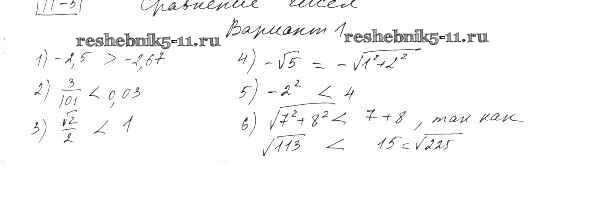 П-3
Сравнение чисел
Вариант 1
reshebnik5-11.ru
reshebnik5-11.ru
1) -2,5 > -2,67
2) 3/101 < 0,03
3) √2/2 < 1
4) -√5 = -√(1²+2²)
5) -2² < 4
6) √(7²+8²) < 7+8, так как
√113 < 15 = √225